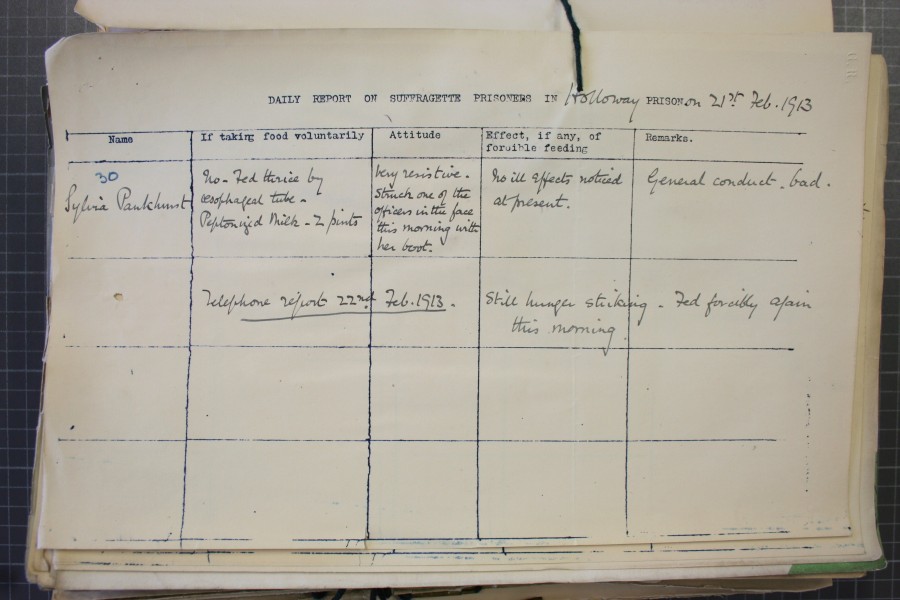 DAILY REPORT ON SUFFRAGETTE PRISONERS IN Holloway PRISON on 21st Feb. 1913
Name
If taking food voluntarily
Attitude
Effect, if any, of
forcible feeding
Remarks.
30
Sylvia Pankhurst
No - Fed thrice by
œsophageal tube -
Peptonized Milk - 2 pints
Very resistive -
Struck one of the
officers in the face
this morning with
her boot.
No ill effects noticed
at present.
General conduct - bad.
Telephone report 22nd Feb. 1913 -
Still hunger striking - Fed forcibly again
this morning